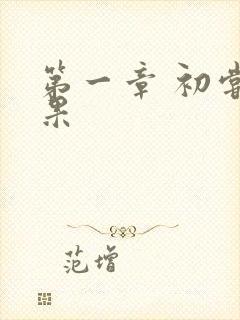 第一章 初尝
果
范增